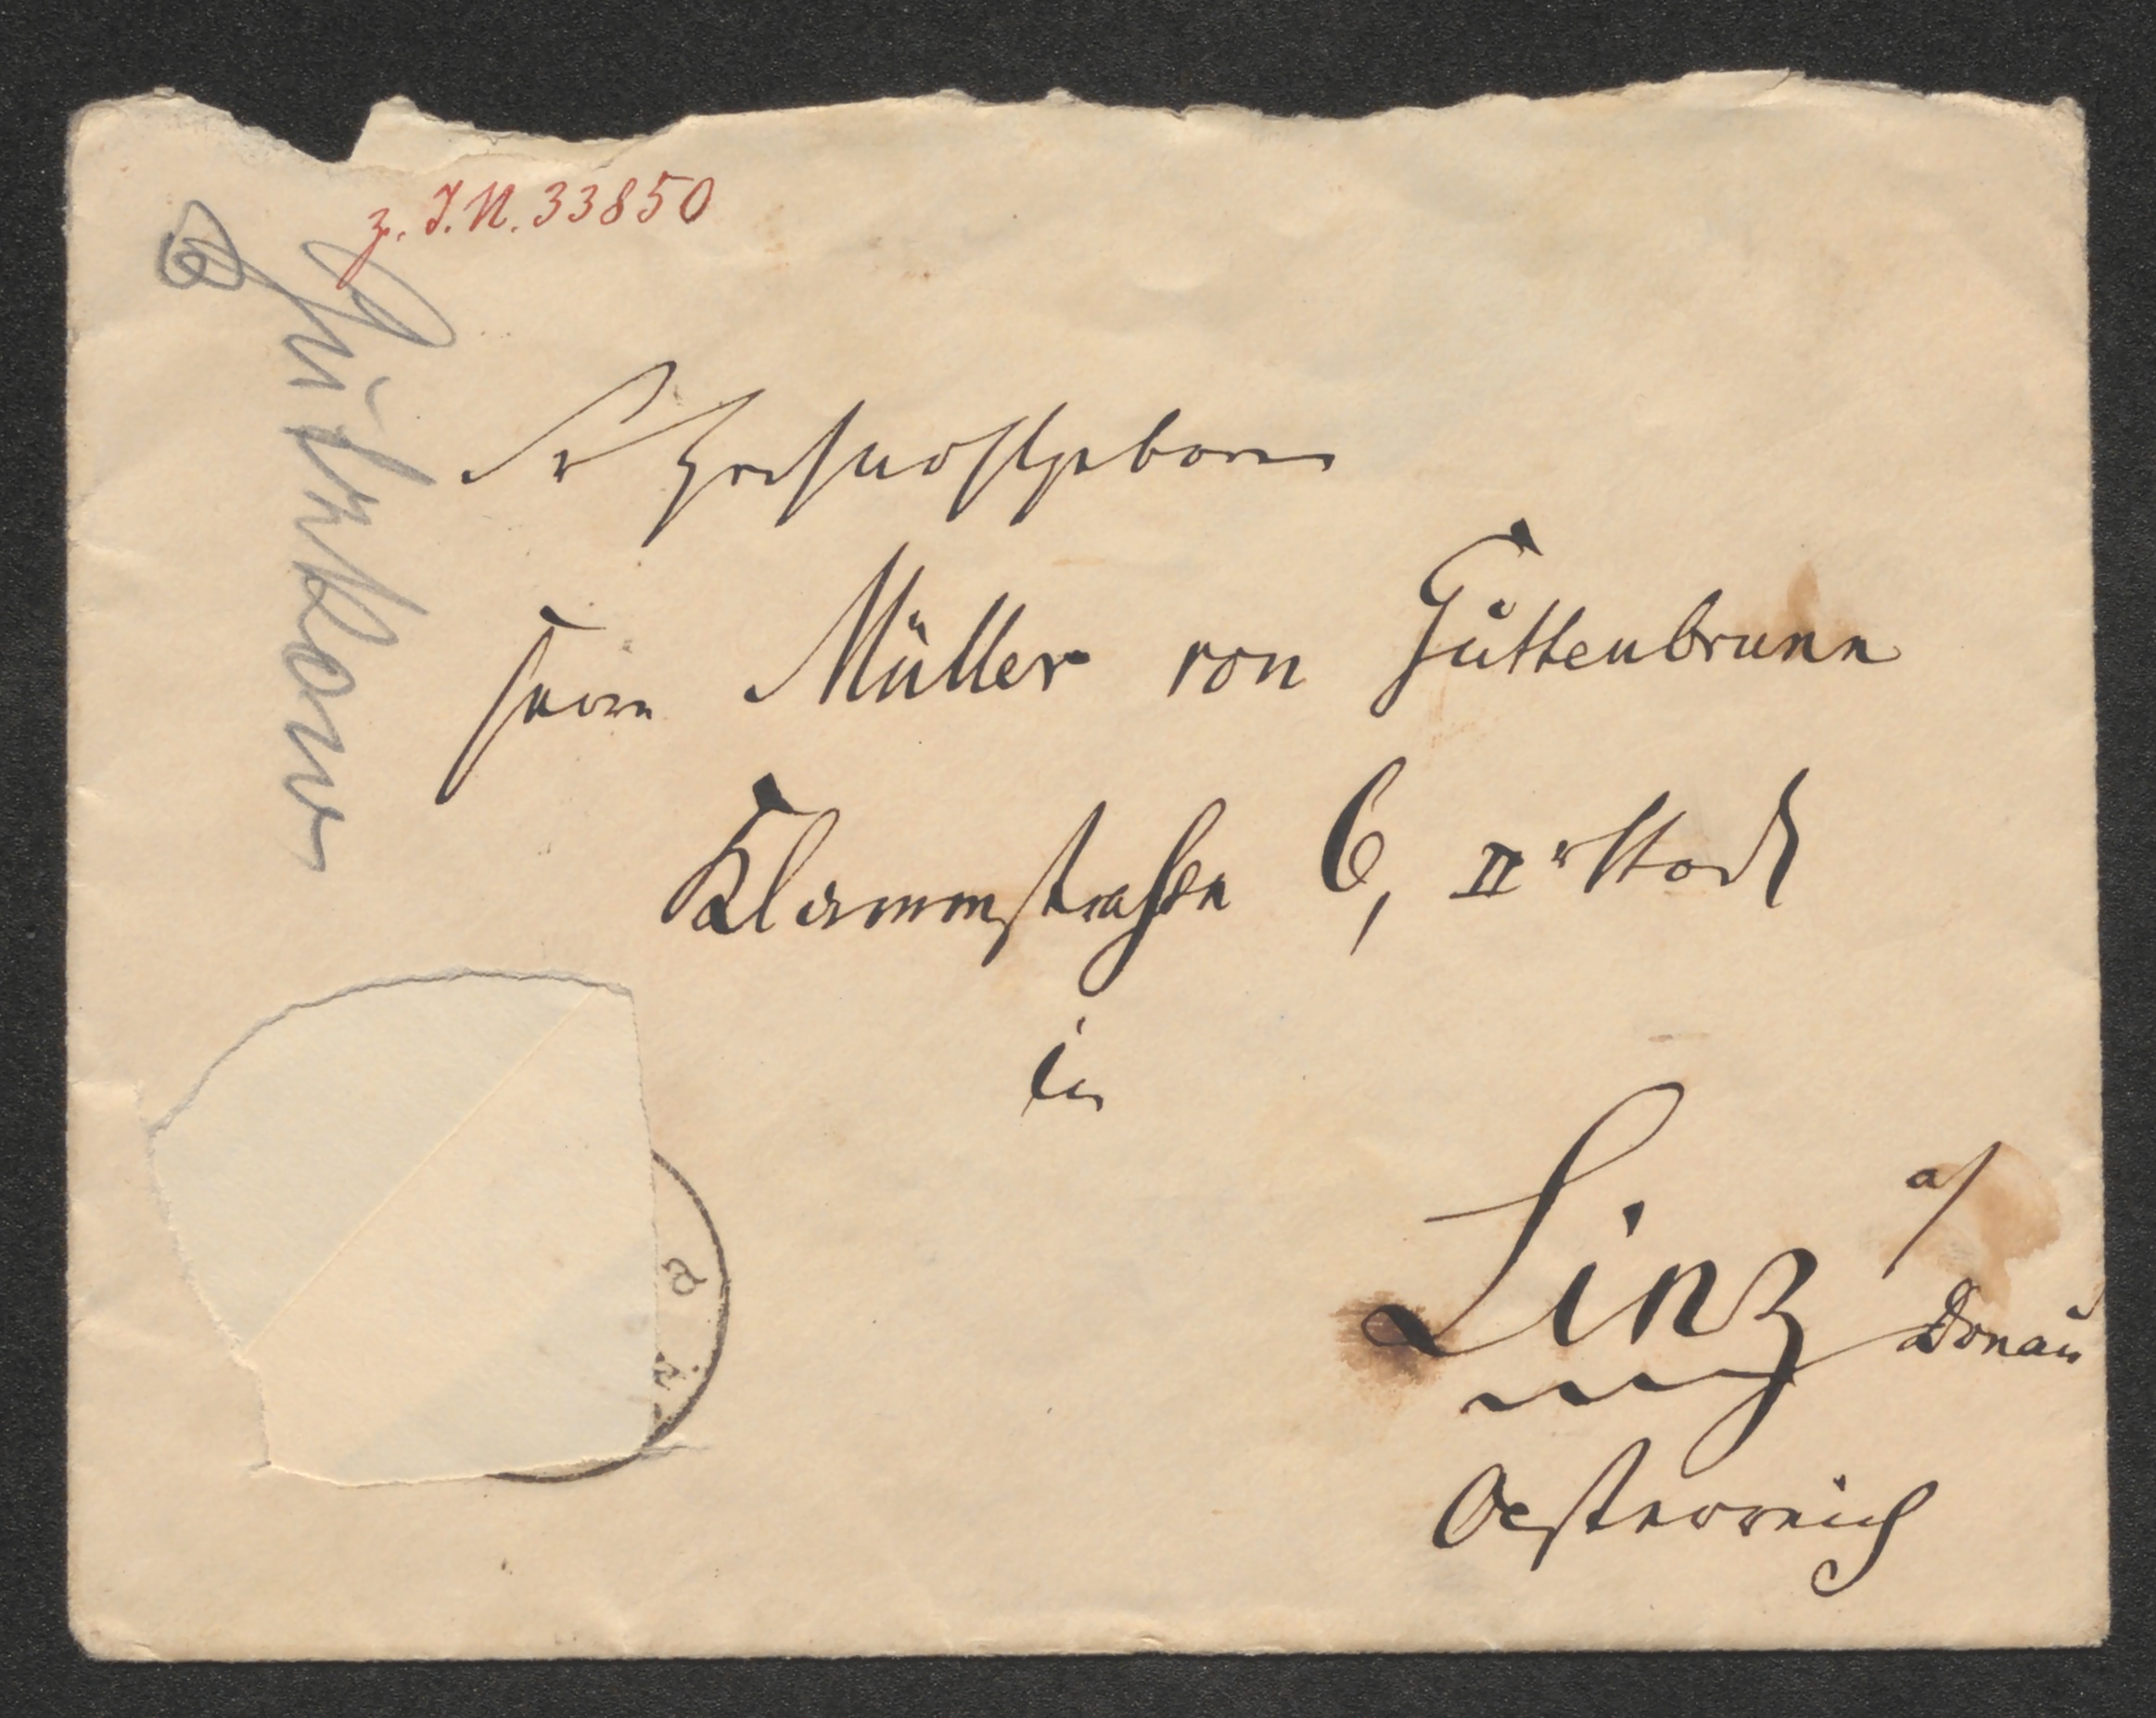 z. I.N. 33850
Sr Hochwohlgeboren
Herrn Müller von Güttenbrunn
Klammstraße 6, IIr Stock
in
Linz a/
Donau
Oesterreich